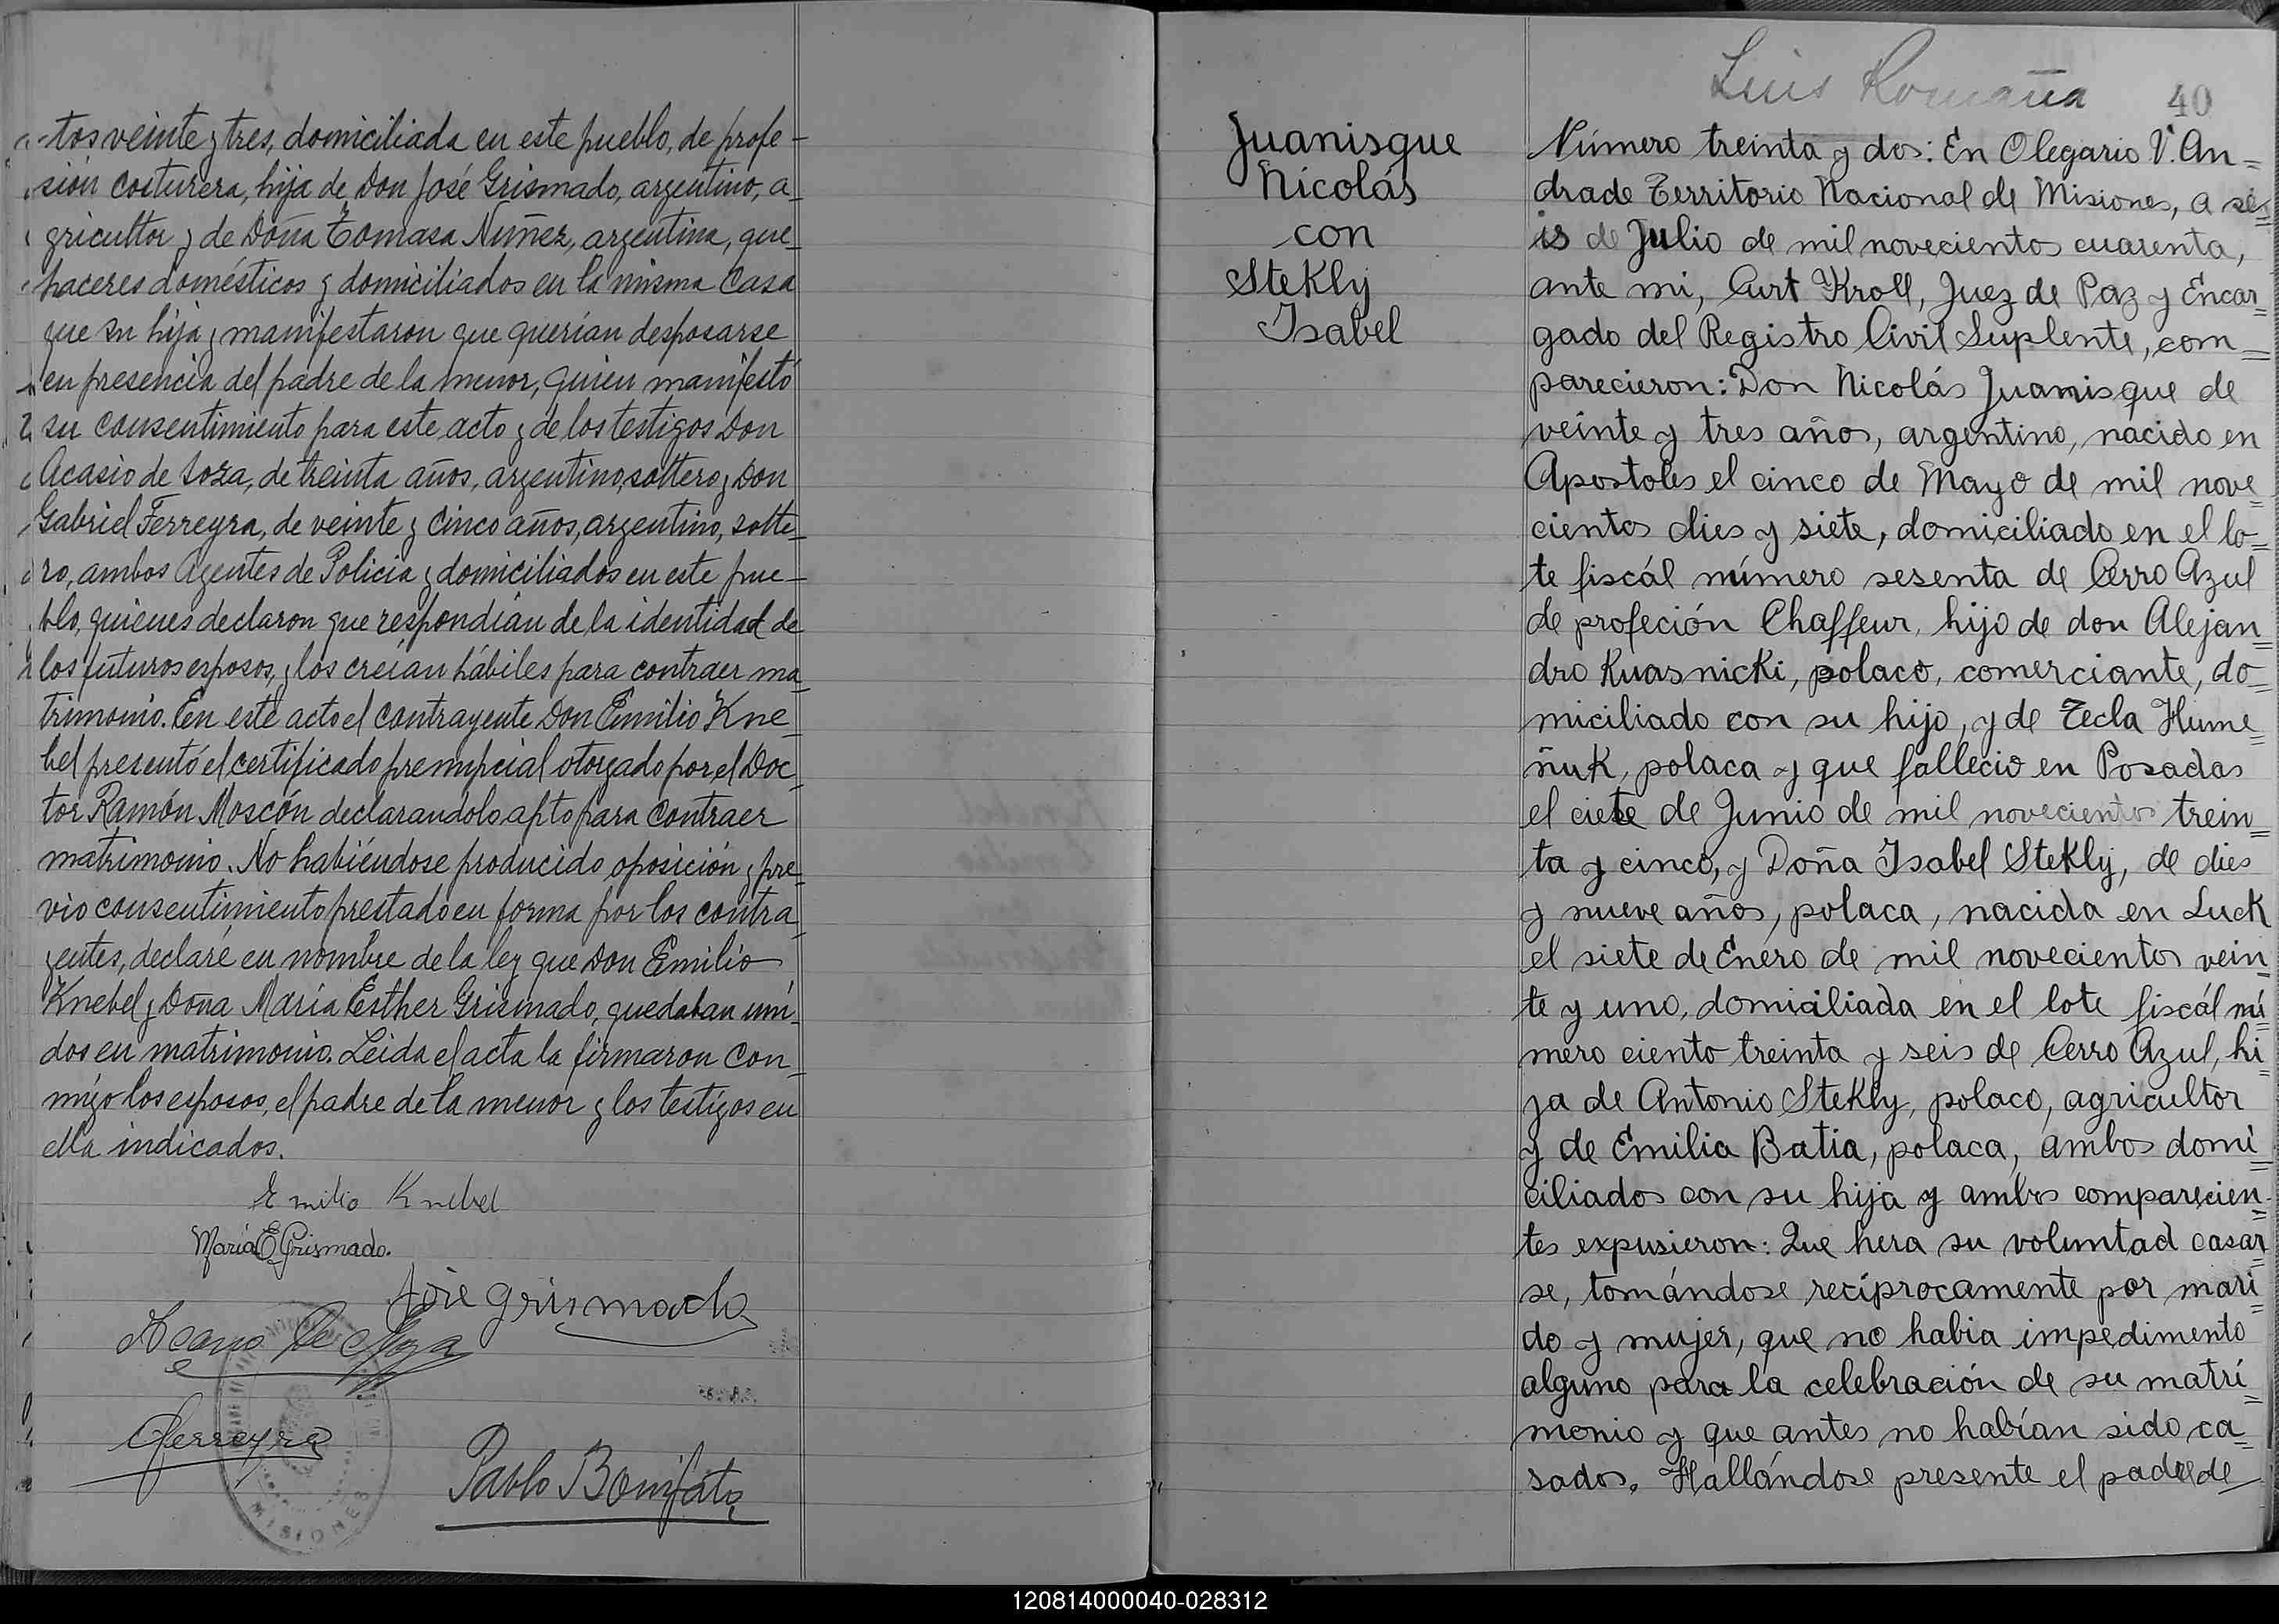 tos veinte y tres, domiciliada en este pueblo, de profe-
sión costurera, hija de Don José Grismado, argentino, a-
gricultor y de Doña Tomasa Nuñez, argentina, que-
haceres domésticos y domiciliados en la misma casa
que su hija y manifestaron que querían desposarse
en presencia del padre de la menor, quien manifestó
su consentimiento para este acto y de los testigos Don
Acasio de Soza, de treinta años, argentino, soltero y Don
Gabriel Ferreyra, de veinte y cinco años, argentino, solte-
ro, ambos Agentes de Policia y domiciliados en este pue-
blo, quienes declaron que respondian de la identidad de
los futuros esposos, y los creían hábiles para contraer ma-
trimonio. En este acto el contrayente Don Emilio Kne-
bel presentó el certificado prenupcial otorgado por el Doc-
tor Ramón Moscón declarandolo apto para contraer
matrimonio. No habiéndose producido oposición y pre-
vio consentimiento prestado en forma por los contra-
yentes, declaré en nombre de la ley que Don Emilio
Knebel y Doña María Esther Grismado, quedaban uni-
dos en matrimonio. Leida el acta la firmaron con-
migo los esposos, el padre de la menor y los testigos en
ella indicados.
Emilio Knebel
María E Grismado.
José Grismado
Acasio De Soza
GFerreyra
MISIONES
Pablo Bonifato
Juanisque
Nicolás
con
Stekly
Isabel
Luis Romaña
40
Número treinta y dos: En Olegario V. An=
drade Territorio Nacional de Misiones, a se=
is de Julio de mil novecientos cuarenta,
ante mi, Curt Kroll, Juez de Paz y Encar=
gado del Registro Civil Suplente, com=
parecieron: Don Nicolás Juanisque de
veinte y tres años, argentino, nacido en
Apostoles el cinco de Mayo de mil nove=
cientos dies y siete, domiciliado en el lo=
te fiscál número sesenta de Cerro Azul
de profeción Chaffeur, hijo de don Alejan=
dro Kuasnicki, polaco, comerciante, do=
miciliado con su hijo, y de Tecla Hume=
ñuk, polaca y que fallecio en Posadas
el ciete de Junio de mil novecientos trein=
ta y cinco, y Doña Isabel Stekly, de dies
y nueve años, polaca, nacida en Luck
el siete de Enero de mil novecientos vein=
te y uno, domiciliada en el lote fiscál nú=
mero ciento treinta y seis de Cerro Azul, hi=
ja de Antonio Stekly, polaco, agricultor
y de Emilia Batia, polaca, ambos domi=
ciliados con su hija y ambos comparecien=
tes expusieron: Que hera su voluntad casar=
se, tomándose recíprocamente por mari=
do y mujer, que no habia impedimento
alguno para la celebración de su matri=
monio y que antes no habían sido ca=
sados. Hallándose presente el padre de
120814000040-028312